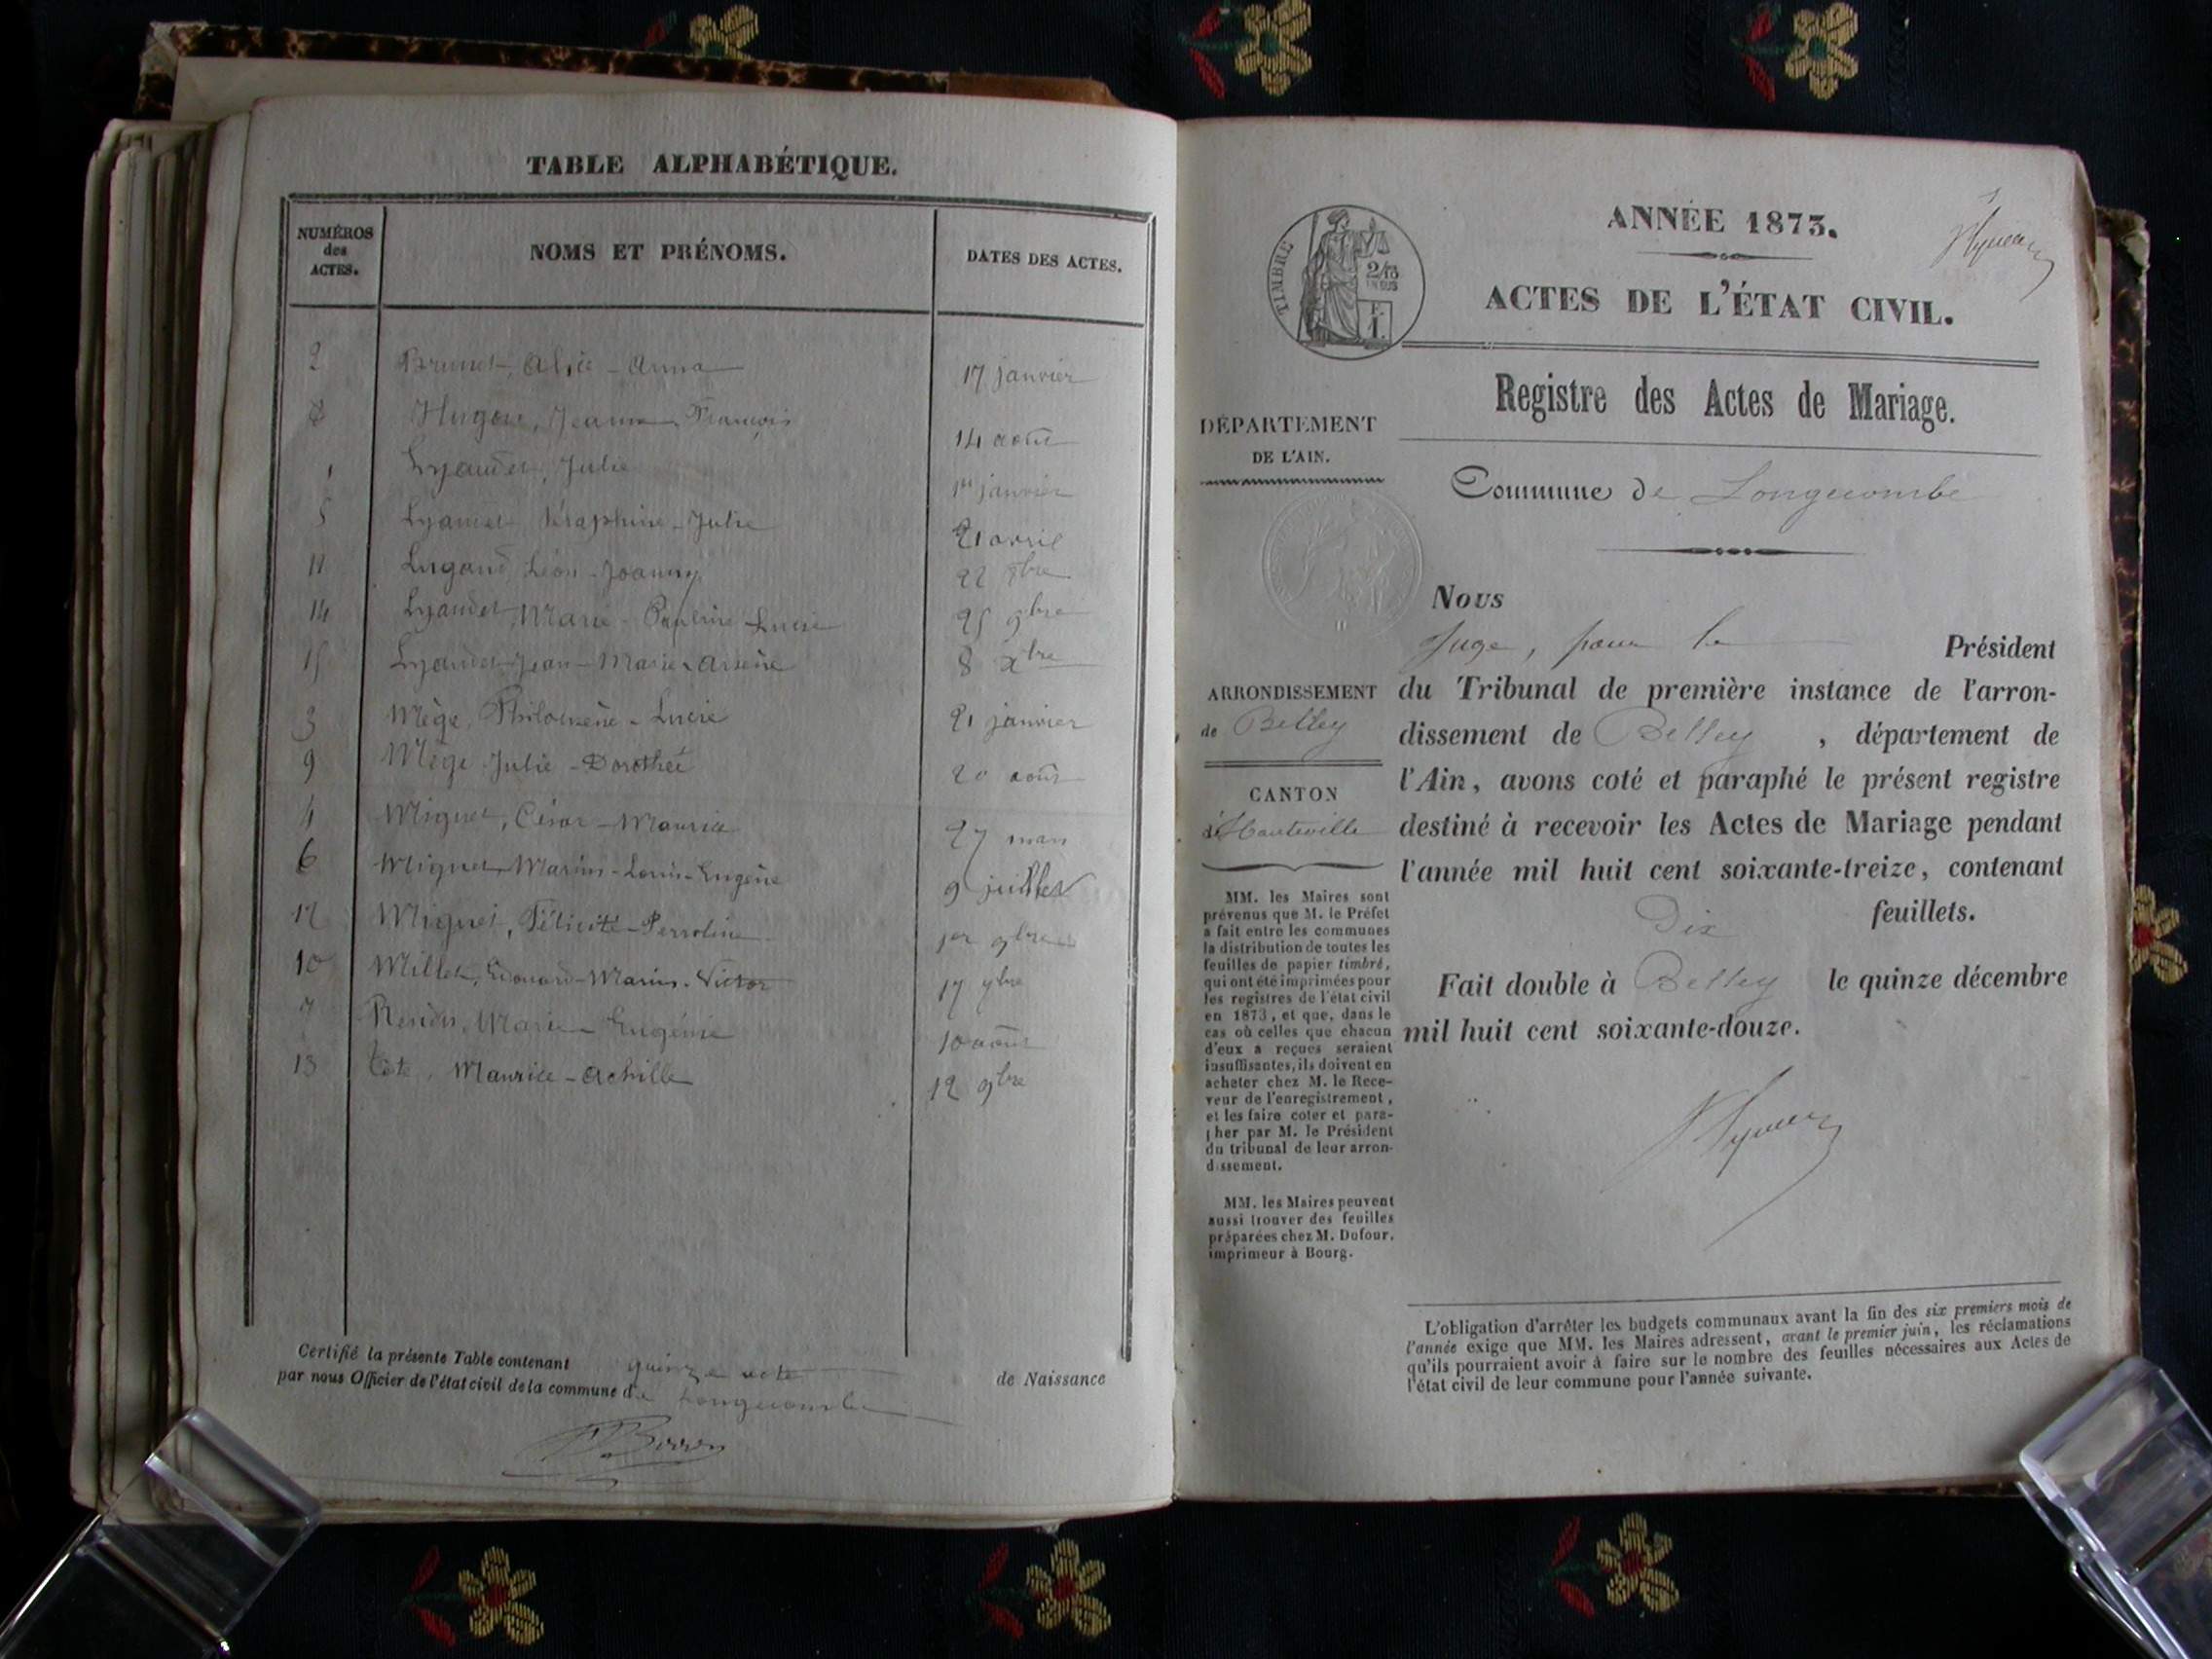 TABLE ALPHABÉTIQUE.
NUMÉROS des ACTES.
NOMS ET PRÉNOMS.
DATES DES ACTES.
2 Brunet, Alice-Anna 17 janvier
Hugon, Jeanne François 14 août
1 Lyaudet, Julie 1er janvier
5 Lyaudet Séraphine-Julie 21 avril
11 Lugand, Léon-Joanny 22 8bre
14 Lyaudet, Marie-Pauline-Lucie 25 9bre
15 Lyaudet Jean-Marie-Arsène 8 xbre
3 Mège, Philomène-Lucie 21 janvier
9 Mège Julie-Dorothée 20 août
4 Miguet, César-Maurice 27 mars
6 Miguet, Marius-Louis-Eugène 9 juillet
12 Miguet, Félicité-Perroline 1er 9bre
10 Millet, Edouard-Marius-Victor 17 9bre
7 Marie-Eugénie 10 août
13 Tête, Maurice-Achille 12 9bre
Certifié la présente Table contenant quinze acte de Naissance
par nous Officier de l'état civil de la commune de Longecombe
ANNÉE 1873.
TIMBRE
ACTES DE L'ÉTAT CIVIL.
Registre des Actes de Mariage.
DÉPARTEMENT
DE L'AIN.
Commune de Longecombe
Nous
Juge, pour le Président
du Tribunal de première instance de l'arron-
dissement de Belley, département de
l'Ain, avons coté et paraphé le présent registre
destiné à recevoir les Actes de Mariage pendant
l'année mil huit cent soixante-treize, contenant
Dix feuillets.
Fait double à Belley le quinze décembre
mil huit cent soixante-douze.
ARRONDISSEMENT
de Belley
CANTON
d'Hauteville
MM. les Maires sont
prévenus que M. le Préfet
a fait entre les communes
la distribution de toutes les
feuilles de papier timbré,
qui ont été imprimées pour
les registres de l'état civil
en 1873, et que, dans le
cas où celles que chacun
d'eux a reçues seraient
insuffisantes, ils doivent en
acheter chez M. le Rece-
veur de l'enregistrement,
et les faire coter et para-
pher par M. le Président
du tribunal de leur arron-
dissement.
MM. les Maires peuvent
aussi trouver des feuilles
préparées chez M. Dufour,
imprimeur à Bourg.
L'obligation d'arrêter les budgets communaux avant la fin des six premiers mois de
l'année exige que MM. les Maires adressent, avant le premier juin, les réclamations
qu'ils pourraient avoir à faire sur le nombre des feuilles nécessaires aux Actes de
l'état civil de leur commune pour l'année suivante.